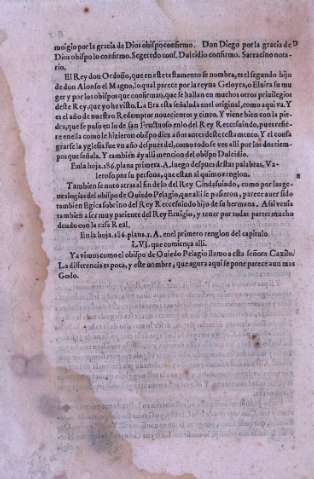 mogio por la gracia de Dios obispo confirmo. Don Diego por la gracia de
Dios obispo lo confirmo. Segeredo conf. Dulcidio confirmo. Sarracino nota
rio.
El Rey don Ordoño, que en este testamento se nombra, es el segundo hijo
de don Alonso el Magno, lo qual parece por la reyna Geloyra, o Eluira su mu
ger y por los obispos que confirman, que se hallan en muchos otros priuilegios
deste Rey, que yo he visto. La Era esta señalada en el original, como aqui va. Y
es el año de nuestro Redemptor nouecientos y cinco. Y viene bien con la pie
dra, que se puso en lo de san Fructuoso en lo del Rey Reccesuindo, pues refie
re en ella como le hizieron obispo diez años antes deste testamento. Y el consa
grarse la yglesia fue vn año despues del, como todo se ves alli por los dos tiem
pos que señala. Y tambien ay alli mencion del obispo Dulcidio.
En la hoja. 186. plana primera. A. luego despues destas palabras. Va-
leroso por su persona, que estan al quinto renglon.
Tambien se noto atras al fin de lo del Rey Cindasuindo, como por
del obispo de Ouiedo Pelagio, que alli se pusieron, parece auer sido
tambien Egica sobrino del Rey Reccesuindo hijo de su hermana. Assi venia
tambien a ser muy pariente del Rey Eruigio, y tener por todas partes mucho
deudo con la casa Real.
En la hoja. 186. plana. 2. A. en el primero renglon del capitulo.
LVI. que comiença alli.
Ya vimos como el obispo de Ouiedo Pelagio llamo a esta señora Cixilo.
La diferencia es poca, y este nombre, que agora aqui se pone parece aun mas
Godo.